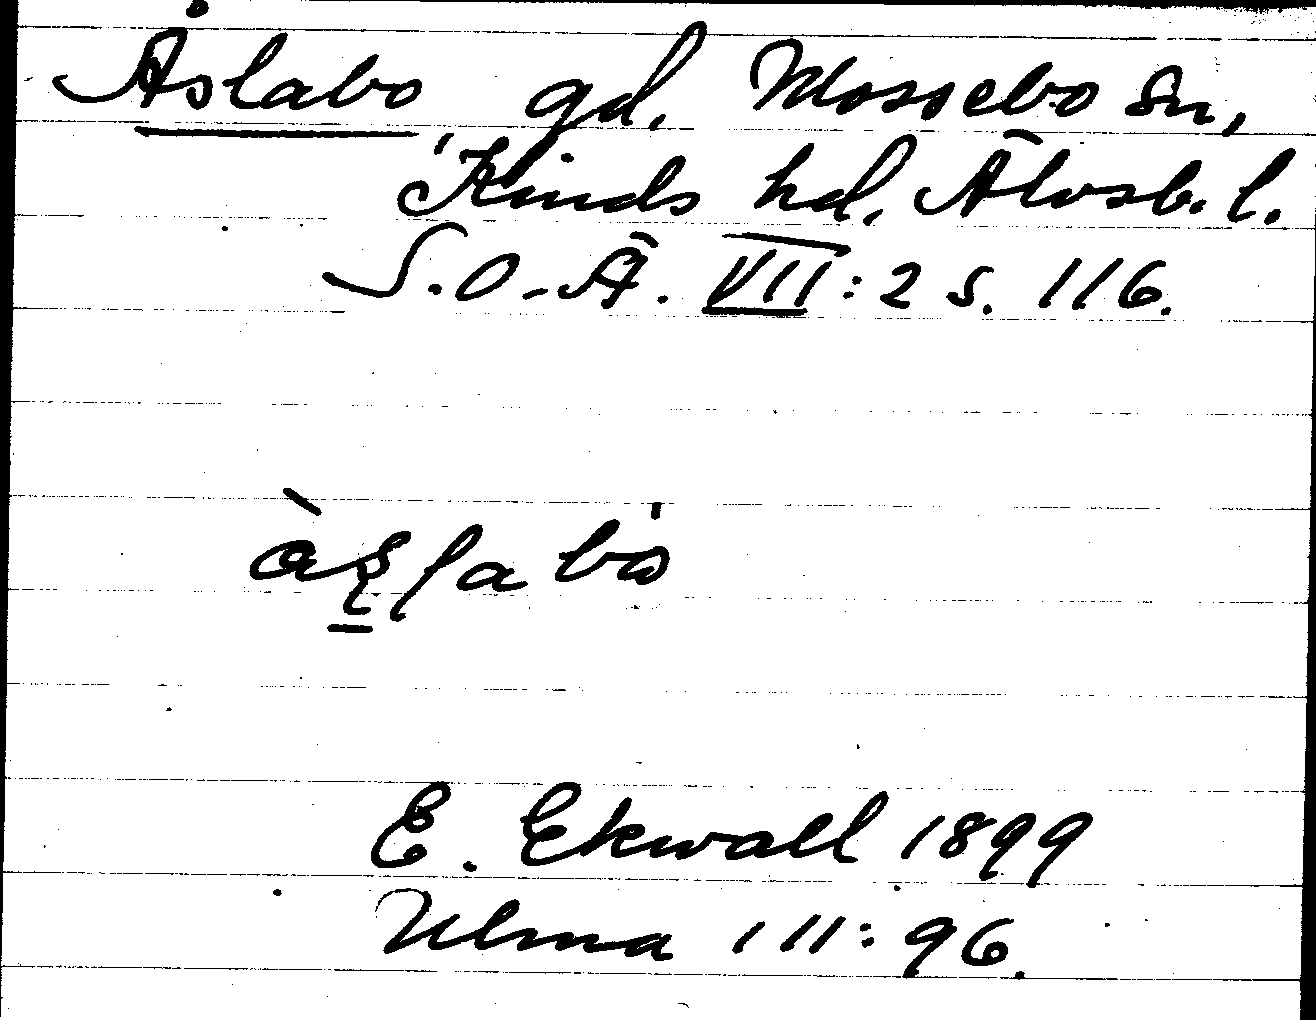 Åslabo gd. Mossebo sn,
Kinds hd. Älvsb. l.
S.O.Ä. VII:2 s. 116.
E. Ekwall 1899
Ulma 111:96.